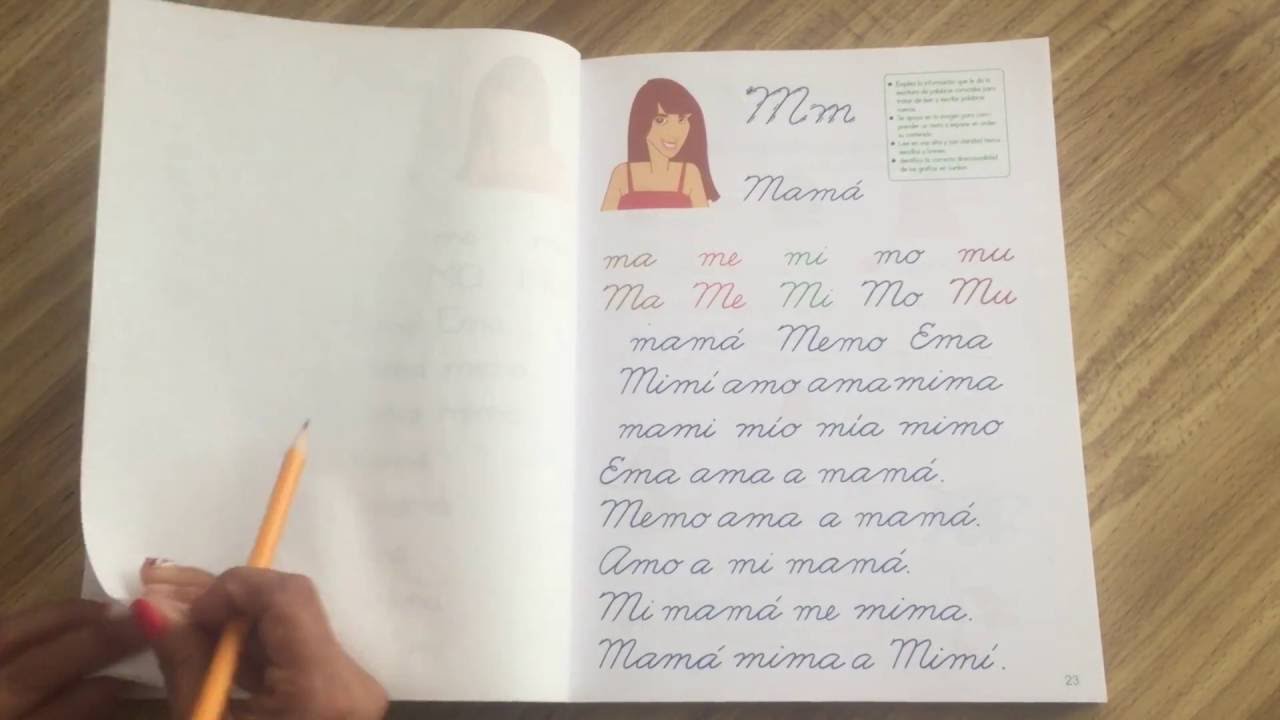 Mm
Mamá
ma me mi mo mu
Ma Me Mi Mo Mu
mamá Memo Ema
Mimí amo ama mima
mami mío mía mimo
Ema ama a mamá.
Memo ama a mamá.
Amo a mi mamá.
Mi mamá me mima.
Mamá mima a Mimí.
23